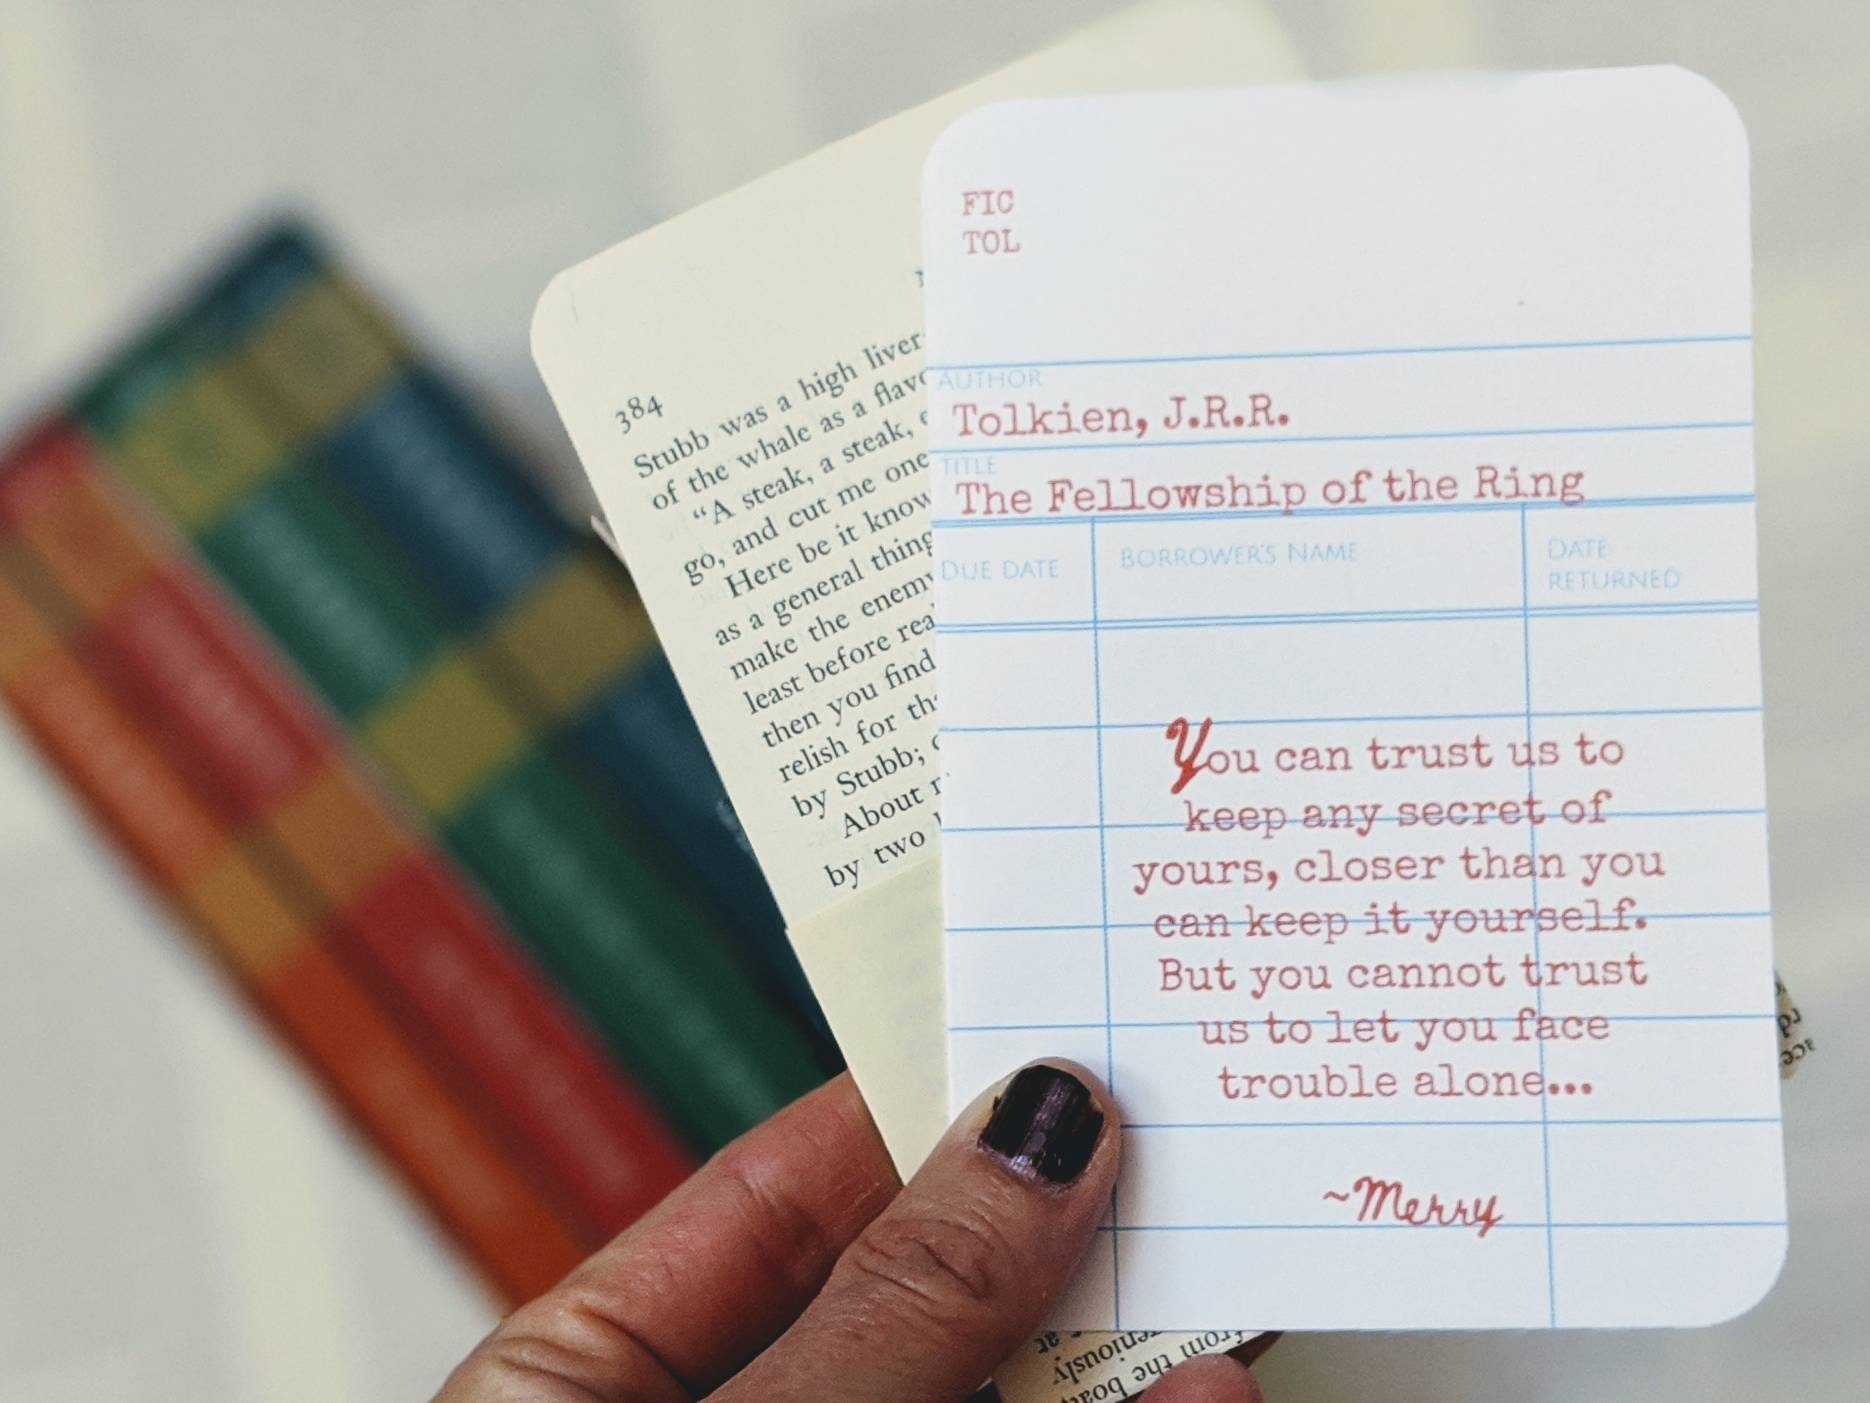 384
Stubb was a high liver
of the whale as a flavo
"A steak, a steak,
go, and cut me one
Here be it know
as a general thing
make the enemy
least before rea
then you find
relish for th
by Stubb;
About
by two
FIC
TOL
AUTHOR
Tolkien, J.R.R.
TITLE
The Fellowship of the Ring
DUE DATE BORROWER'S NAME DATE
RETURNED
You can trust us to
keep any secret of
yours, closer than you
can keep it yourself.
But you cannot trust
us to let you face
trouble alone...
~Merry
from the boa
eniously
at